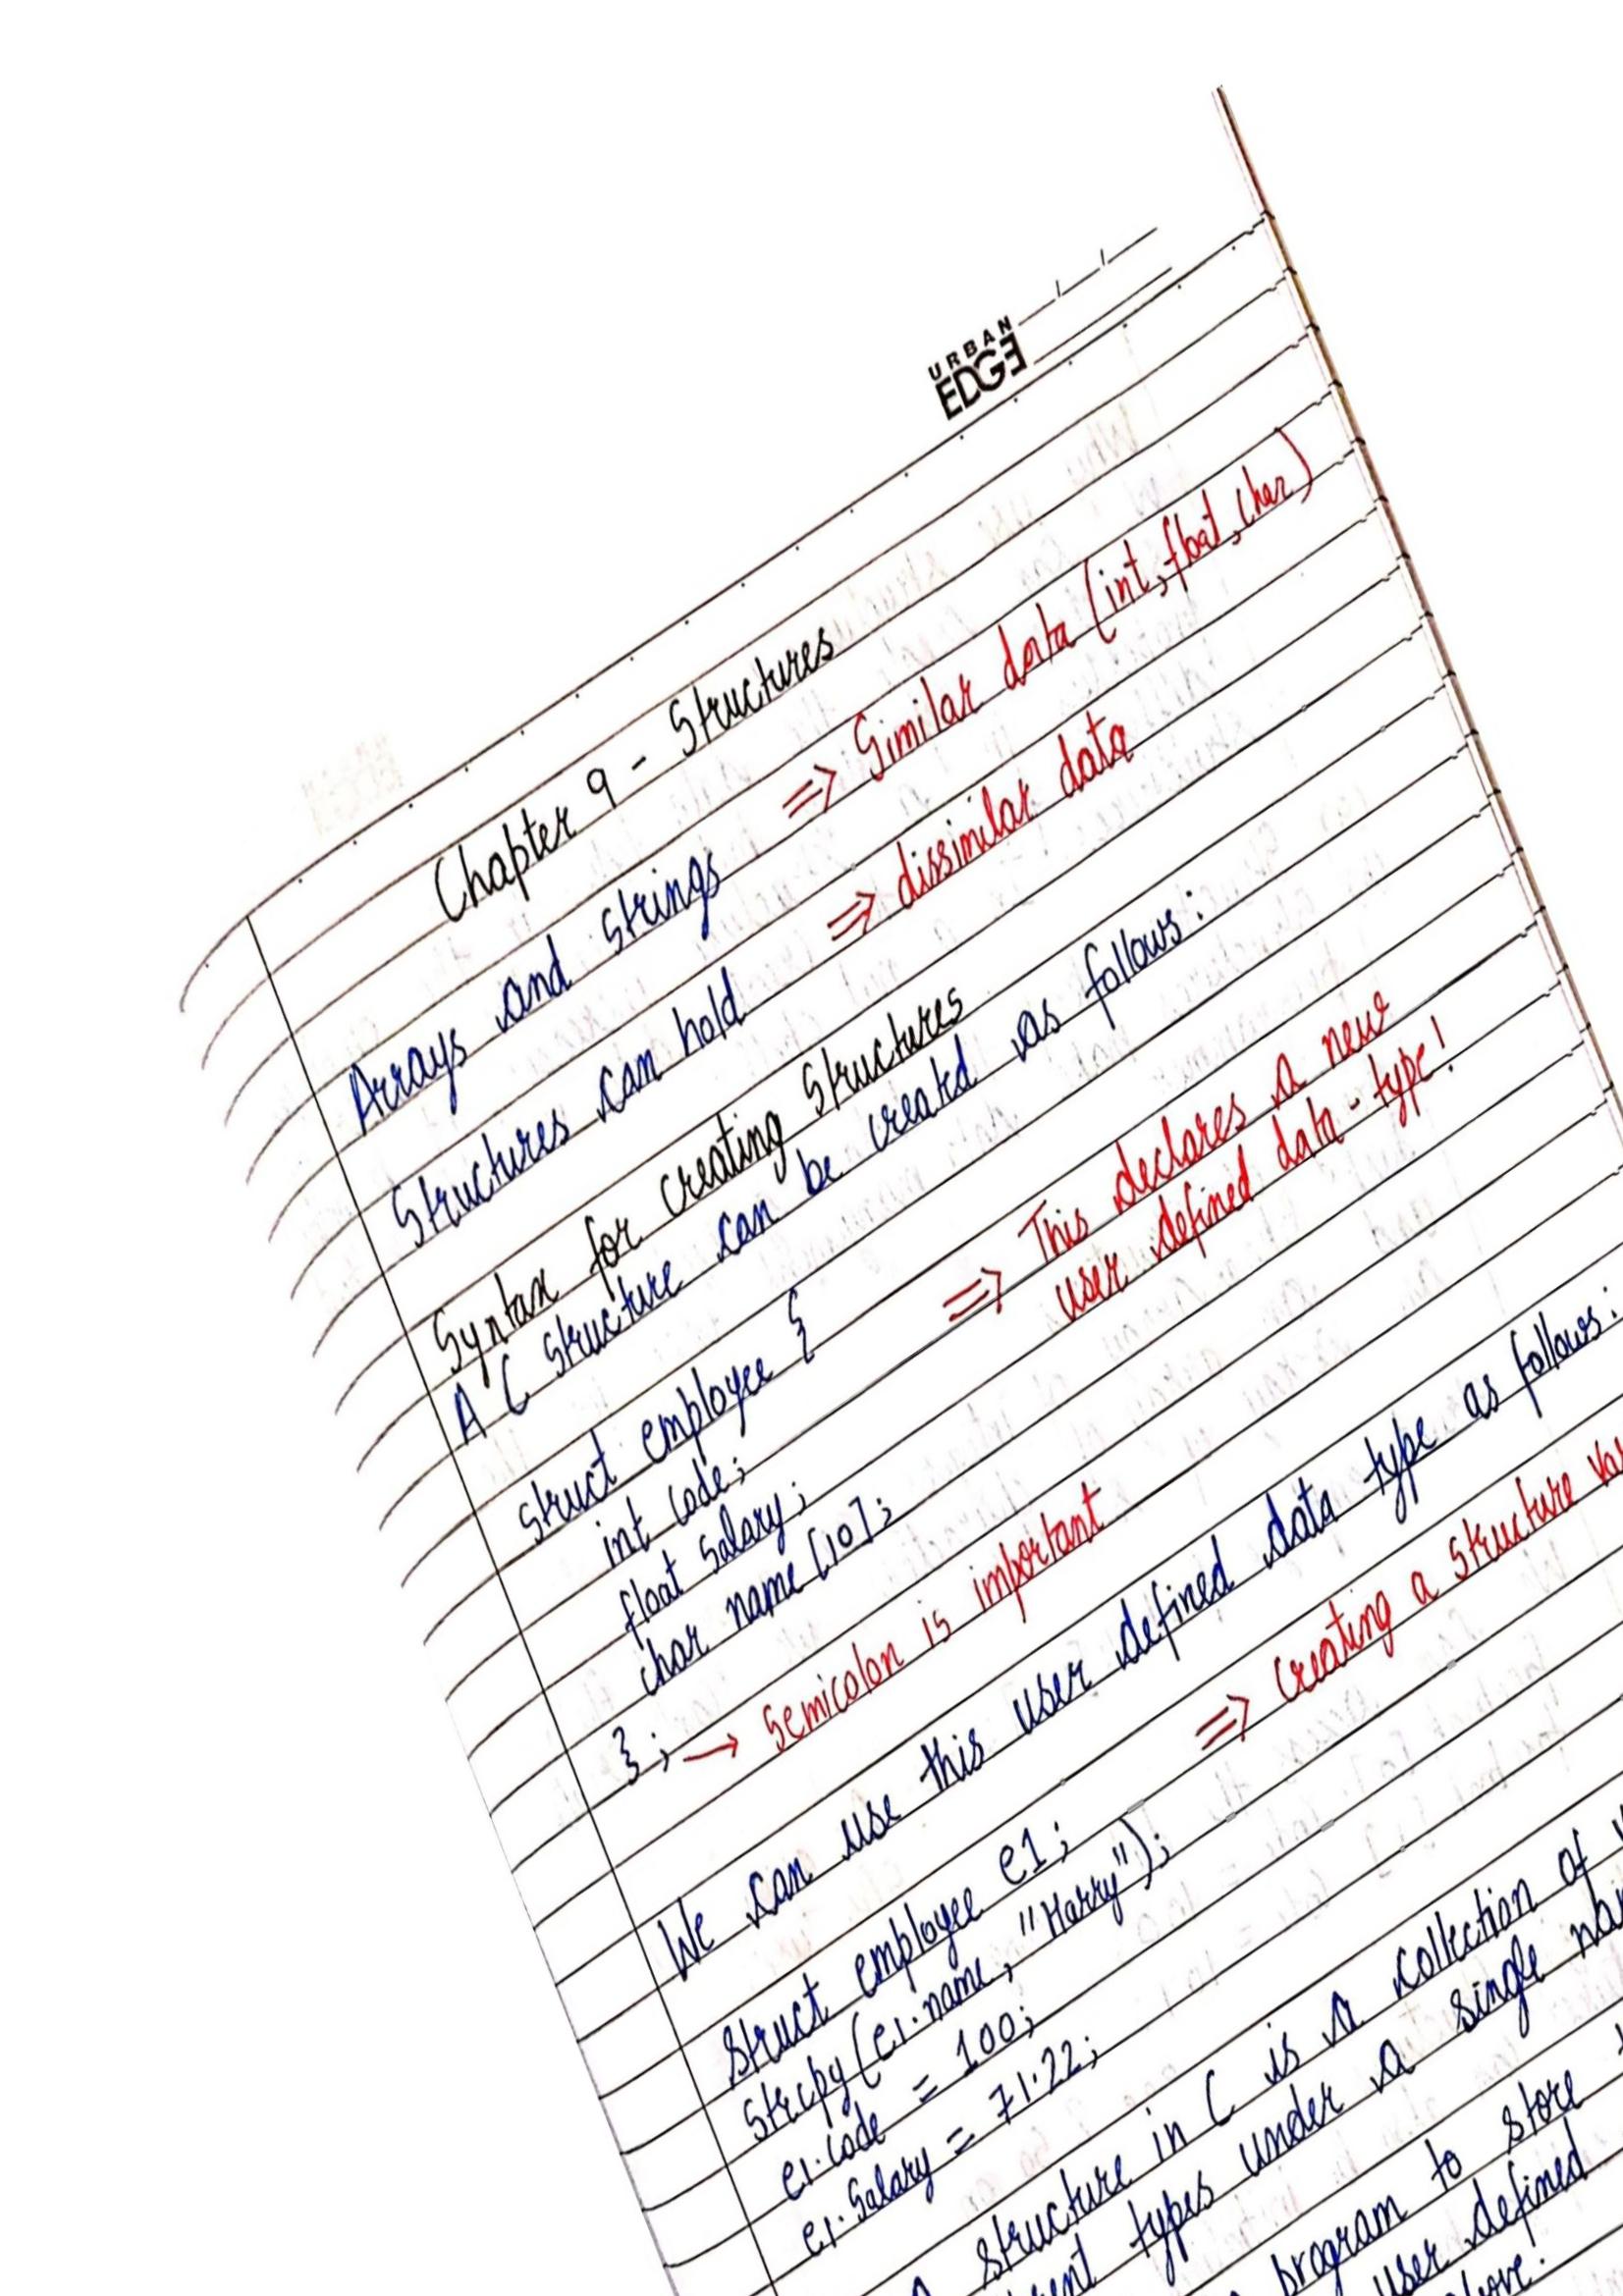 URBAN
EDGE
Chapter 9 - Structures
Arrays and strings => Similar data (int, float, char)
Structures can hold => dissimilar data
Syntax for creating Structures
A C Structure can be created as follows:
struct employee { => This declares a new
user defined data-type!
int code;
float Salary;
char name[10];
}; → Semicolon is important
We can use this user defined data type as follows:
struct employee e1; => creating a structure
strcpy(e1.name, "Harry");
e1.code = 100;
e1.Salary = 71.22;
structure in C is a collection of
types under a single
program to store
user defined